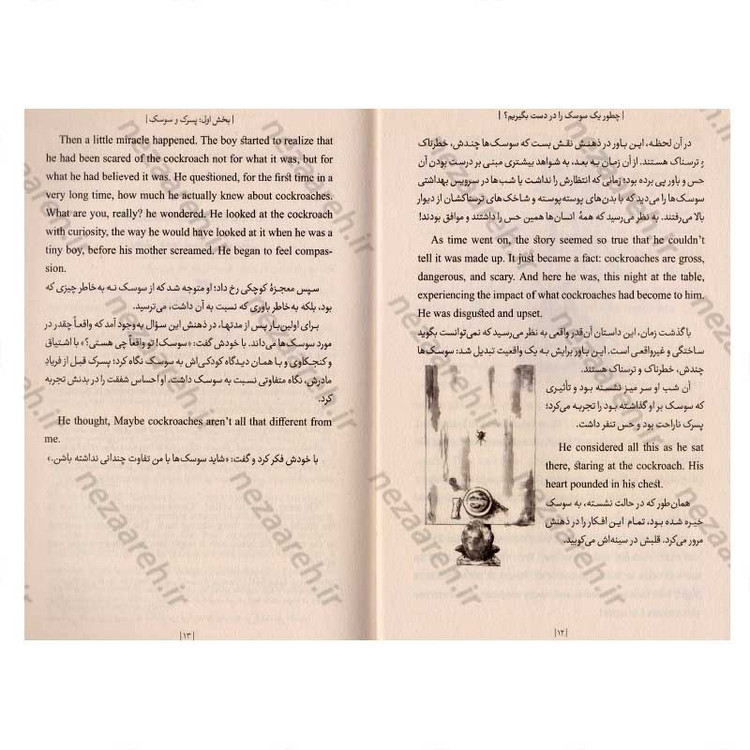 | چطور یک سوسک را در دست بگیریم؟ |
در آن لحظه، این باور در ذهنش نقش بست که سوسک‌ها چندش، خطرناک
و ترسناک هستند. از آن زمان به بعد، به شواهد بیشتری مبنی بر درست بودن آن
حس و باور پی برده بود؛ زمانی که انتظارش را نداشت یا شب‌ها در سرویس بهداشتی
سوسک‌ها را می‌دید که با بدن‌های پوسته‌پوسته و شاخک‌های ترسناکشان از دیوار
بالا می‌رفتند. به نظر می‌رسید که همهٔ انسان‌ها همین حس را داشتند و موافق بودند!
As time went on, the story seemed so true that he couldn’t
tell it was made up. It just became a fact: cockroaches are gross,
dangerous, and scary. And here he was, this night at the table,
experiencing the impact of what cockroaches had become to him.
He was disgusted and upset.
با گذشت زمان، این داستان آن‌قدر واقعی به نظر می‌رسید که نمی‌توانست بگوید
ساختگی و غیرواقعی است. این باور برایش به یک واقعیت تبدیل شد: سوسک‌ها
چندش، خطرناک و ترسناک هستند.
آن شب او سر میز نشسته بود و تأثیری
که سوسک بر او گذاشته بود را تجربه می‌کرد؛
پسرک ناراحت بود و حس تنفر داشت.
He considered all this as he sat
there, staring at the cockroach. His
heart pounded in his chest.
همان‌طور که در حالت نشسته، به سوسک
خیره شده بود، تمام این افکار را در ذهنش
مرور می‌کرد. قلبش در سینه‌اش می‌کوبید.
|۱۲|
| بخش اول: پسرک و سوسک |
Then a little miracle happened. The boy started to realize that
he had been scared of the cockroach not for what it was, but for
what he had believed it was. He questioned, for the first time in a
very long time, how much he actually knew about cockroaches.
What are you, really? he wondered. He looked at the cockroach
with curiosity, the way he would have looked at it when he was a
tiny boy, before his mother screamed. He began to feel compas-
sion.
سپس معجزهٔ کوچکی رخ داد؛ او متوجه شد که از سوسک نه به خاطر چیزی که
بود، بلکه به خاطر باوری که نسبت به آن داشت، می‌ترسید.
برای اولین‌بار پس از مدتها، در ذهنش این سؤال به‌وجود آمد که واقعاً چقدر در
مورد سوسک‌ها می‌داند. با خودش گفت: «سوسک! تو واقعاً چی هستی؟» با اشتیاق
و کنجکاوی و با همان دیدگاه کودکی‌اش به سوسک نگاه کرد؛ پسرک قبل از فریادِ
مادرش، نگاه متفاوتی نسبت به سوسک داشت. او احساس شفقت را در بدنش تجربه
کرد.
He thought, Maybe cockroaches aren’t all that different from
me.
با خودش فکر کرد و گفت: «شاید سوسک‌ها با من تفاوت چندانی نداشته باشن.»
|۱۳|
nezaareh.ir